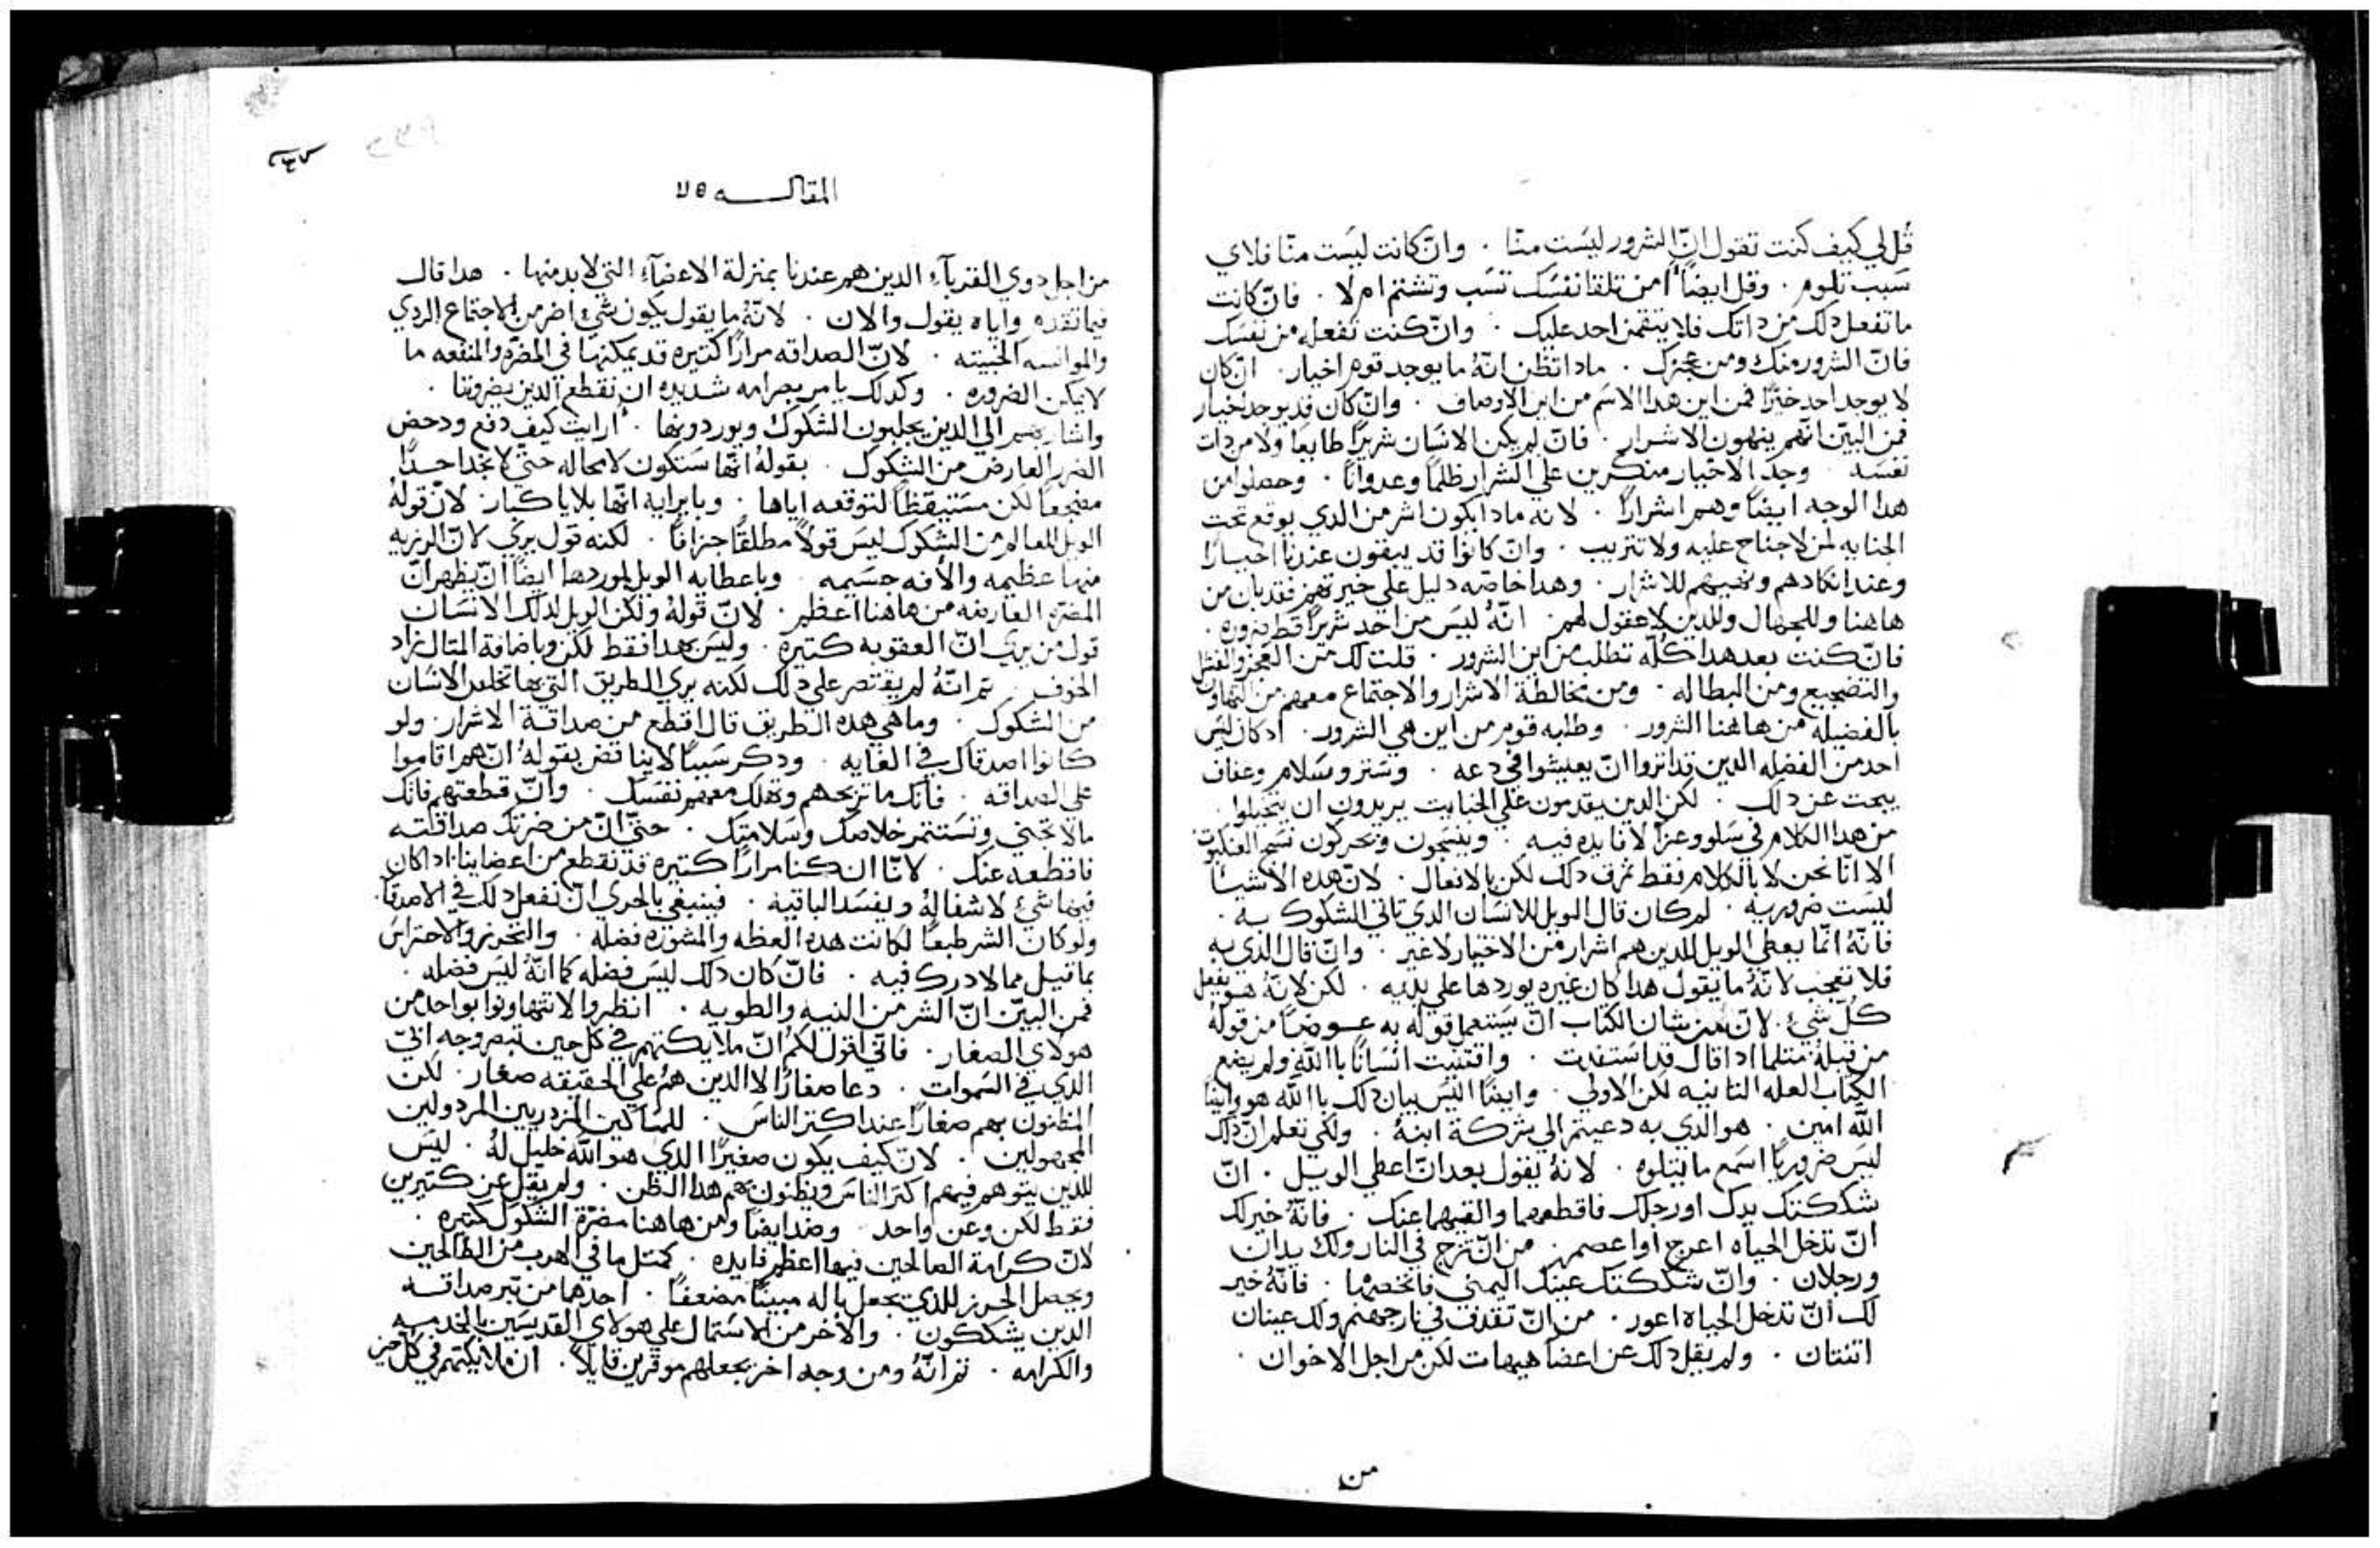 قل لي كيف كنت تقول انّ الشرور ليست منّا . وانّ كانت ليست منّا فلاي
سبب تلوم . وقل ايضاً امن تلقا نفسك تسب وتشتم ام لا . فانّ كانت
ما تفعل دلك من داتك فلا ينتقمن احد عليك . وانّ كنت تفعله من نفسك
فانّ الشرور منك ومن عجزك . مادا تظن انهُ ما يوجد قوم اخيار . ان كان
لا يوجد احد خيّرًا فمن اين هدا الاسم من اين الاوصاف . وانّ كان قد يوجد اخيار
فمن البيّن انّهم ينهون الاشرار . فانّ لم يكن الانسان شريرًا طايعًا ولا من دات
نفسه وجد الاخيار منكرين علي الشرار ظلمًا وعدوانًا . وحصلوا من
هدا الوجه ايضًا وهم اشرارًا . لانه مادا يكون اشر من الدي يوقع تحت
الجنايه لمن لا جناح عليه ولا تتريب . وانّ كانوا قد يبقون عندنا اخيارًا
وعند انكادهم ونهيهم للاشرار . وهدا خاصّه دليل علي خيرتهم فقد بان من
هاهنا وللجهال وللدين لا عقول لهم . انّهُ ليس من احد شريرًا قط بزوره .
فانّ كنت بعد هدا كلّه تطلب من اين الشرور . قلت لك من العجز والفشل
والتضجيع ومن البطاله . ومن مخالطة الاشرار والاجتماع معهم من التهاون
بالفضيله من هاهنا الشرور . وطلبه قوم من اين هي الشرور . اد كان ليس
احد من الفضله الدين قد اتروا انّ يعيشوا في دعه . وستر وسلام وعفاف
يبحت عن دلك . لكن الدين يقدمون علي الخبايت يريدون ان يتخيلوا .
من هدا الكلام في سلو وعزا لا فايده فيه . وينسجون ويحركون نسج العنكبوت
الا انّا نحن لا بالكلام فقط نمزف دلك لكن بالافعال . لانّ هده الاشيا
ليست ضروريه . لم كان قال الويل للانسان الدي تاتي الشكوك به .
فانّهُ انّما يعطي الويل للدين هم اشرار من الاختيار لا غير . وانّ قال الذي به
فلا تعجب لانّهُ ما يقول هدا كان غيره يوردها علي يديه . لكن لانّهُ هو يفعل
كلّ شي . لانّ من شان الكتاب انّ يستعمل قوله به عوضًا من قوله
من قبله . متلما ادا قال قد استفدت . واقتنيت انسانًا باالله ولم يضع
الكتاب العله التانيه لكن الاولي . وايضًا اليس بيان دلك باالله هو وايضًا
الله امين . هو الدي به دعيتم الي شركة ابنهُ . ولكي تعلم انّ دلك
ليس ضروريًا اسمع ما يتلوه . لانهُ يقول بعد انّ اعطي الويل . انّ
شككتك يدك او رجلك فاقطعهما والقيهما عنك . فانّهُ خير لك
انّ تدخل الحياه اعرج او اعصم . من انّ تزج في النار ولك يدان
ورجلان . وانّ شككتك عينك اليمني فانخصها . فانّهُ خير
لك انّ تدخل الحياه اعور . من انّ تقدف في نار جهنم ولك عينان
اتنتان . ولم يقل دلك عن اعضا هيهات لكن من اجل الاخوان .
من
المقالـــه ٥٧
من اجل دوي القربآء الدين هم عندنا بمنزلة الاعضآء التي لا بد منها . هدا قال
فيما تقدم واياه يقول والان . لانّهُ ما يقول يكون شي اضر من الاجتماع الردي
والموانسه الخبيته . لانّ الصداقه مرارًا كتيره قد يمكنها في المضره والمنفعه ما
لا يمكن الضروره . وكدلك يامر بصرامه شديده ان نقطع الدين يضروننا .
واشار بهم الي الدين يجلبون الشكوك ويوردونها . ارايت كيف دفع ودحض
الضرر العارض من الشكوك . بقولهُ انّها ستكون لا محاله حتّي لا نجد احدًا
مضجعًا لكن مستيقظًا لتوقعه اياها . وبايرايه انّها بلايا كبار . لانّ قولهُ
الويل للعالم من الشكوك ليس قولاً مطلقًا جزافًا . لكنه قول يري لانّ الرزيه
منها عظيمه والافه جسيمه . وباعطايه الويل لموردها ايضًا انّ يظهر انّ
المضره العارضه من هاهنا اعظم . لانّ قولهُ ولكن الويل لدلك الانسان
قول من يري انّ العقوبه كتيره . وليس بهدا فقط لكن وباضافة المتال زاد
الخوف . تم انّهُ لم يقتصر علي دلك لكنه يري الطريق التي بها تخلص الانسان
من الشكوك . وما هي هده الطريق قال اقطع من صداقة الاشرار ولو
كانوا اصدقاك في الغايه . ودكر سببًا لا يناقض بقولهُ انّ هم اقاموا
علي الصداقه . فانّك ما تربحهم وتهلك معهم نفسك . وانّ قطعتهم فانّك
مالا تجني وتستتمر خلاصك وسلامتك . حتّي انّ من ضرتك صداقته
فاقطعه عنك . لانّا ان كنا مرارًا كتيره قد نقطع من اعضاينا ادا كان
فيها شي لا شفا لهُ ويفسد الباقيه . فينبغي بالحري انّ نفعل دلك في الاصدقا .
ولو كان الشر طبعًا لكانت هده العظه والمشوره فضله . والتحرز والاحتراس
بما قيل مما لا درك فيه . فانّ كان دلك ليس فضله كما انّهُ ليس فضله .
فمن البيّن انّ الشر من النيه والطويه . انظروا لا تتهاونوا بواحد من
هولاي الصغار . فاني اقول لكم انّ ملايكتهم في كل حين تبصر وجه ابي
الدي في السموات . دعا صغارًا لا الدين هم علي الحقيقه صغار . لكن
المظنون بهم صغارًا عند اكتر الناس . للمساكين المزدريين المردولين
المجهولين . لانّ كيف يكون صغيرًا الدي هو الله خليل لهُ . ليس
للدين يتوهم فيهم اكتر الناس ويظنون بهم هدا الظن . ولم يقل عن كتيرين
فقط لكن وعن واحد . وصد ايضًا ومن هاهنا مضرّة الشكوك كتيره .
لانّ كرامة الصالحين فيها اعظم فايده . كمتل ما في الهرب من الطالحين
ويحصل الحرز للدي يجعل باله مبينًا مضعفًا . احدهما من تبر صداقه
الدين يشككون . والاخر من الاشتمال علي هولاي القديسين بالخدمه
والكرامه . تم انّهُ ومن وجه اخر يجعلهم موقرين قايلاً . ان ملايكتهم في كل حين